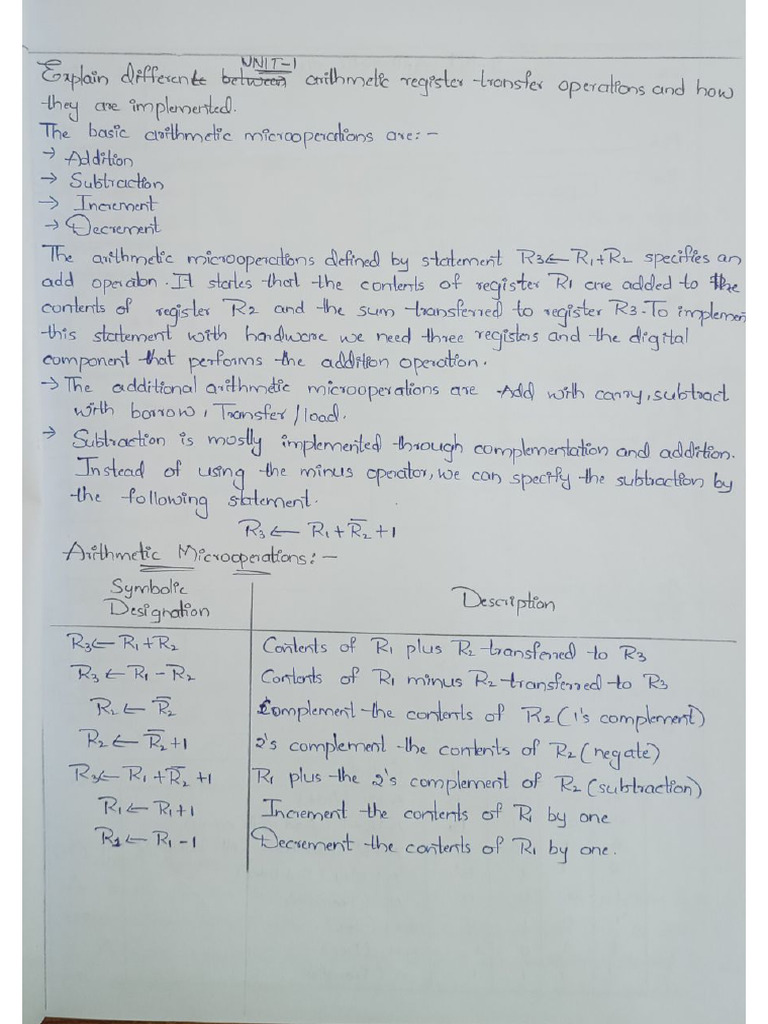 UNIT-1
Explain different between arithmetic register transfer operations and how
they are implemented.
The basic arithmetic microoperations are:-
→ Addition
→ Subtraction
→ Increment
→ Decrement
The arithmetic microoperations defined by statement R3←R1+R2 specifies an
add operation. It states that the contents of register R1 are added to the
contents of register R2 and the sum transferred to register R3. To implement
this statement with hardware we need three registers and the digital
component that performs the addition operation.
→ The additional arithmetic microoperations are Add with carry, subtract
with borrow, Transfer/load.
→ Subtraction is mostly implemented through complementation and addition.
Instead of using the minus operator, we can specify the subtraction by
the following statement.
R3 ← R1 + R̅2 + 1
Arithmetic Microoperations:-
Symbolic Designation | Description
R3 ← R1 + R2 | Contents of R1 plus R2 transferred to R3
R3 ← R1 - R2 | Contents of R1 minus R2 transferred to R3
R2 ← R̅2 | Complement the contents of R2 (1's complement)
R2 ← R̅2 + 1 | 2's complement the contents of R2 (negate)
R3 ← R1 + R̅2 + 1 | R1 plus the 2's complement of R2 (subtraction)
R1 ← R1 + 1 | Increment the contents of R1 by one
R1 ← R1 - 1 | Decrement the contents of R1 by one.